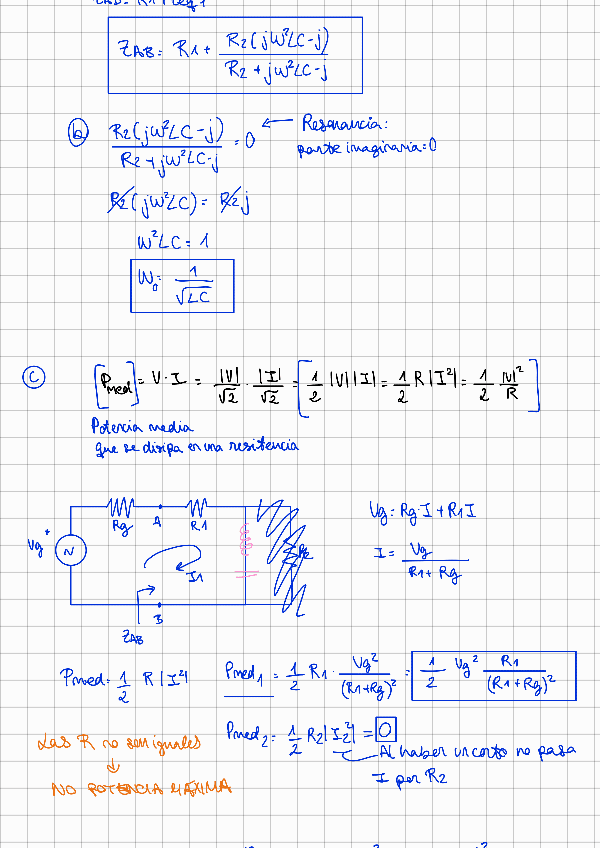 Z_AB = R1 + R2(jw²LC-j) / R2 + jw²LC-j
b) R2(jw²LC-j) / R2+jw²LC-j = 0 ← Resonancia:
parte imaginaria=0
R2(jw²LC) = R2j
w²LC = 1
W₀ = 1/√LC
c) [Pmed] = V·I = |V|/√2 · |I|/√2 = [1/2 |V||I| = 1/2 R|I²| = 1/2 |V|²/R]
Potencia media
que se disipa en una resistencia
Vg
+
~
Rg
A
R1
R2
I1
B
Z_AB
Vg = Rg·I + R1I
I = Vg / R1+Rg
Pmed = 1/2 R|I²|
Pmed₁ = 1/2 R1 · Vg²/(R1+Rg)² = 1/2 Vg² R1/(R1+Rg)²
Pmed₂ = 1/2 R2|I₂²| = 0
Al haber un corto no pasa
I por R2
Las R no son iguales
↓
NO POTENCIA MÁXIMA